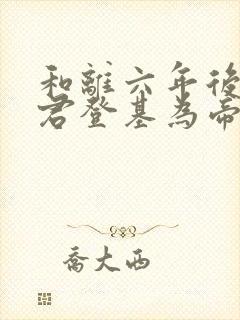 和離六年後
君登基為帝
喬大西